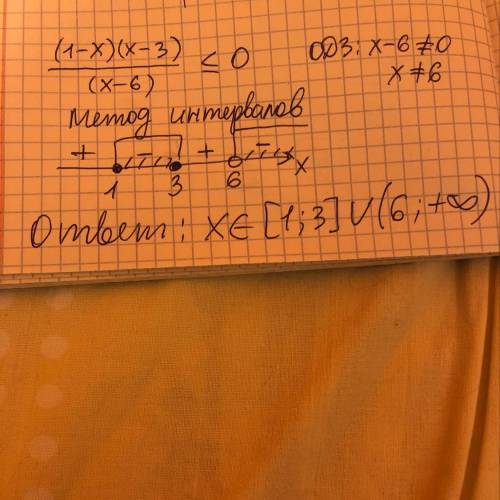 (1-x)(x-3)/(x-6) ≤ 0 ОДЗ: x-6≠0
x≠6
метод интервалов
+ - + - x
1 3 6
Ответ: x∈[1;3]∪(6;+∞)